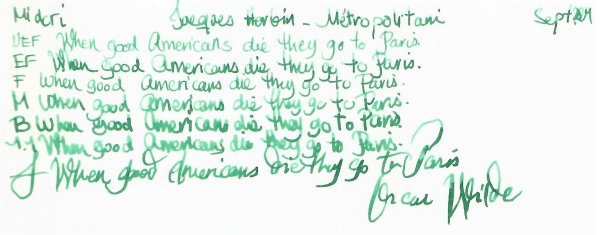 Midori Jacques Herbin - Métropolitain Sept 2024
UEF When good Americans die they go to Paris.
EF When good Americans die, they go to Paris.
F When good Americans die they go to Paris.
M When good Americans die they go to Paris.
B When good Americans die they go to Paris.
1.1 When good Americans die they go to Paris.
J When good Americans die they go to Paris
Oscar Wilde